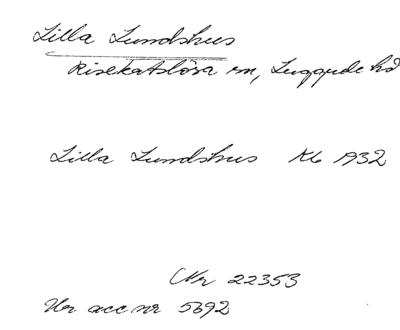 Lilla Lundshus
Risekatslösa sn, Luggude hd
Lilla Lundshus Kb 1932
Nr 22353
Ur acc nr 5692